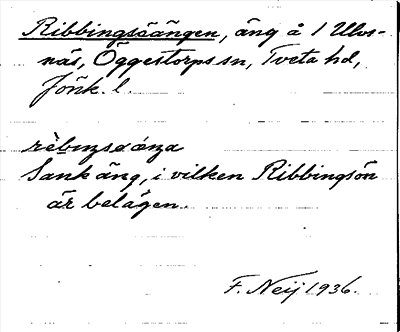 Ribbingsöängen, äng å 1 Ulvs-
näs, Öggestorps sn, Tveta hd,
Jönk. l.
Sank äng, i vilken Ribbingsön
är belägen.
F. Neij 1936.